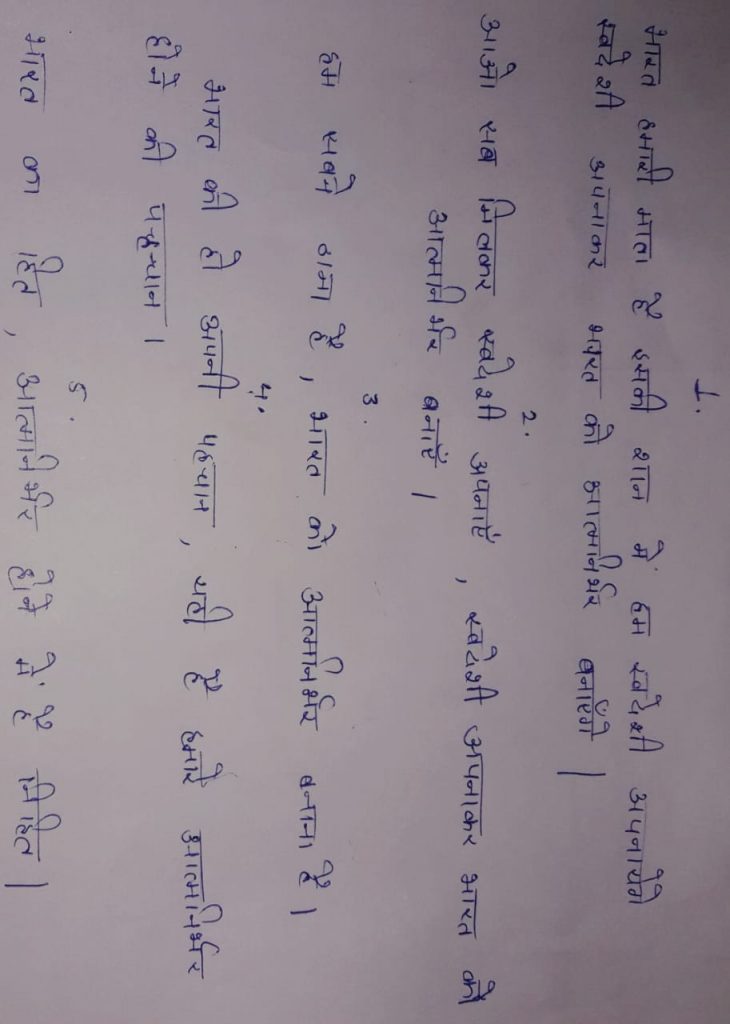 1.
भारत हमारी माता है इसकी शान में हम स्वदेशी अपनायेगे
स्वदेशी अपनाकर भारत को आत्मनिर्भर बनाएंगे |
2.
आओ सब मिलकर स्वदेशी अपनाएं , स्वदेशी अपनाकर भारत को
आत्मनिर्भर बनाएं |
3.
हम सबने ठाना है , भारत को आत्मनिर्भर बनाना है |
4.
भारत की हो अपनी पहचान , यही है हमारे आत्मनिर्भर
होने की पहचान |
5.
भारत का हित , आत्मनिर्भर होने में है निहित |